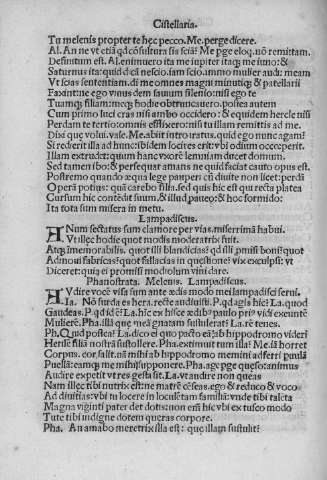 Cistellaria.
Tu melenis propter te hęc pecco. Me. perge dicere.
Al. An ne vt etiā qd cōsultura sis sciā? Me pge eloq. nō remittam.
Definitum est. Al. enimuero ita me iupiter itaq; me iuno: &
Saturnus ita: quid dicā nescio. iam scio. immo mulier audi: meam
Vt scias sententiam. di me omnes magni minutiq; & patellarii
Faxint: ne ego viuus dem sauium silenio: nisi ego te
Tuamq; filiam: meq; hodie obtruncauero. postea autem
Cum primo luci cras nisi ambo occidero: & equidem hercle nisi
Perdam te tertio: omnis efflixero: nisi tu illam remittis ad me.
Dixi que volui. vale. Me. abiit intro iratus. quid ego nunc agam?
Si redierit illa ad hunc: ibidem loci res erit: vbi odium occeperit.
Illam extrudet: quium hanc vxorē lemniam ducet domum.
Sed tamen ibo: & persequar amans ne quid faciat cauto opus est.
Postremo quando ęqua lege pauperi cū diuite non licet: perdā
Operā potius: quā carebo filia. sed quis hic est qui recta platea
Cursum hic contēdit suum, & illud paueo: & hoc formido:
Ita tota sum misera in metu.
Lampadiscus.
ANum sectatus sum clamore per vias. miserrimā habui.
Vt illęc hodie quot modis moderatrix fuit.
Atq; immemorabilis. quot illi blandicias? qd illi pmisi boni? quot
Admoui fabricas? quot fallacias in questione? vix exculpsi: vt
Diceret: quia ei promisi modiolum vini dare.
Phanostrata. Melenis. Lampadiscus.
AVdire vocē visa sum ante ędis modo mei lampadisci serui.
La. Nō surda es hera. recte audiuisti. P. qd agis hic? La. quod
Gaudeas. P. qd id ē? La. hīc ex hisce ędib' paulo pri' vidi exeuntē
Mulierē. Pha. illā quę meā gnatam sustulerat? La. rē tenes.
Ph. Quid postea? La. dico ei quo pacto eā ab hippodromo viderī
Herilē filiā nostrā sustollere. Pha. extimuit tum illa? Me. iā horret
Corpus. cor salit. nā mihi ab hippodromo memini adferri paulā
Puellā: eamq; me mihi supponere. Pha. age pge queso: animus
Audire expetit vt res gesta sit. La. vt andire non queas
Nam illęc tibi nutrix est: ne matrē cēseas. ego & reduco & voco
Ad diuitias: vbi tu locere in luculētam familiā: vnde tibi talēta
Magna viginti pater det dotis: non em̄ hic vbi ex tusco modo
Tute tibi indigne dotem queras corpore.
Pha. An amabo meretrix illa est: que illam sustulit?